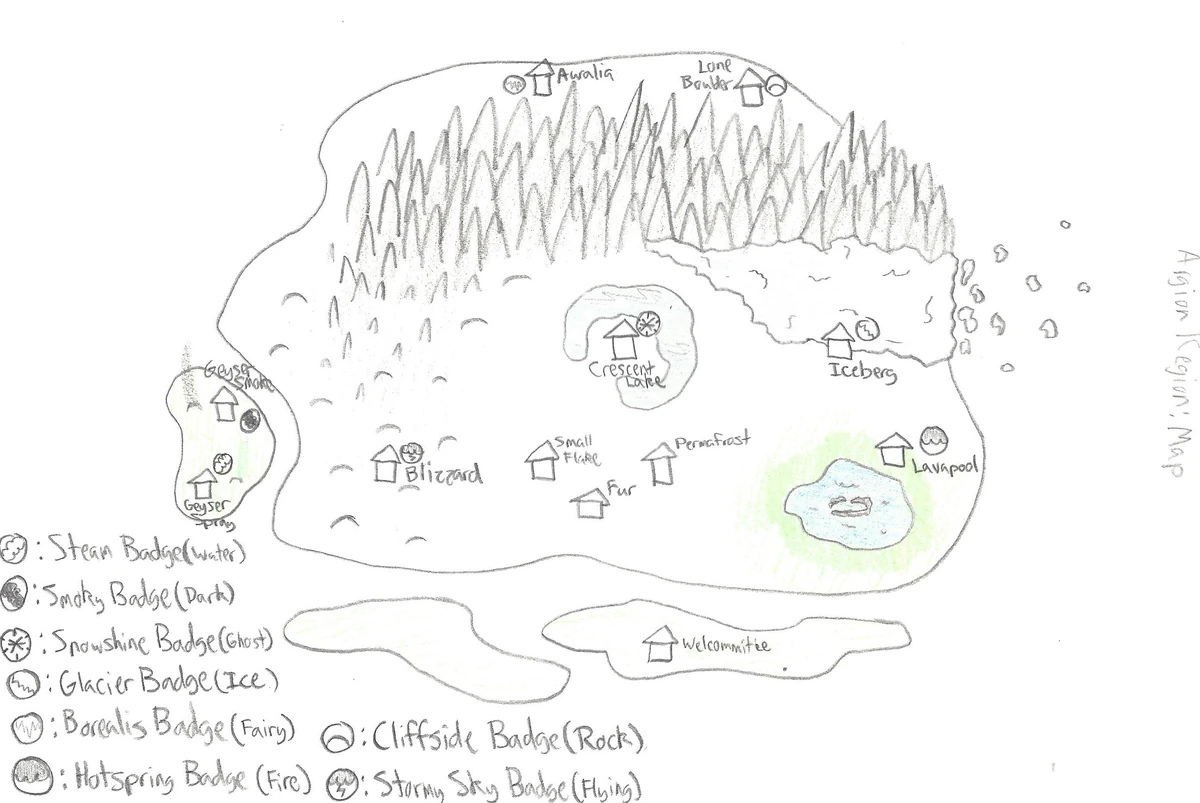 Awalia
Lone
Boulder
Argion Region: Map
Crescent
Lake
Iceberg
Geyser
Smoke
Small
Flake
Permafrost
Blizzard
Lavapool
Fur
Geyser
Spray
: Steam Badge(water)
: Smoky Badge(Dark)
: Snowshine Badge(Ghost)
: Glacier Badge(Ice)
: Borealis Badge(Fairy)
: Hotspring Badge (Fire)
Welcommitee
: Cliffside Badge(Rock)
: Stormy Sky Badge(Flying)